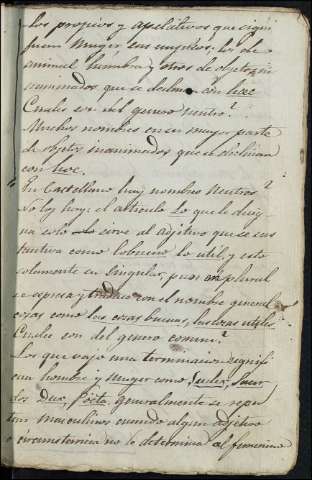 los propios y apelativos que signi
fican Muger, sus empleos: los de
animal hembra y otros de objetos in
animados que se declinan con haec
Cuales son del genero neutro?
Muchos nombres en su mayor parte
de objetos inanimados que se declinan
con hoc.
En Castellano hay nombres Neutros?
No los hay: el articulo Lo que le desig
na solo sirve al adjetivo que se sus
tantiva como lo bueno lo util, y esto
solamente en Singular, pues en plural
se espresa y traduce con el nombre general
cosas como las cosas buenas, las cosas utiles.
Cuales son del genero comun?
Los que vajo una terminacion signifi
can hombre y muger como Judex, Sacer
dos Dux, generalmente se repu
tan masculinos cuando algun adjetivo
o circunstancia no le determina al femenino